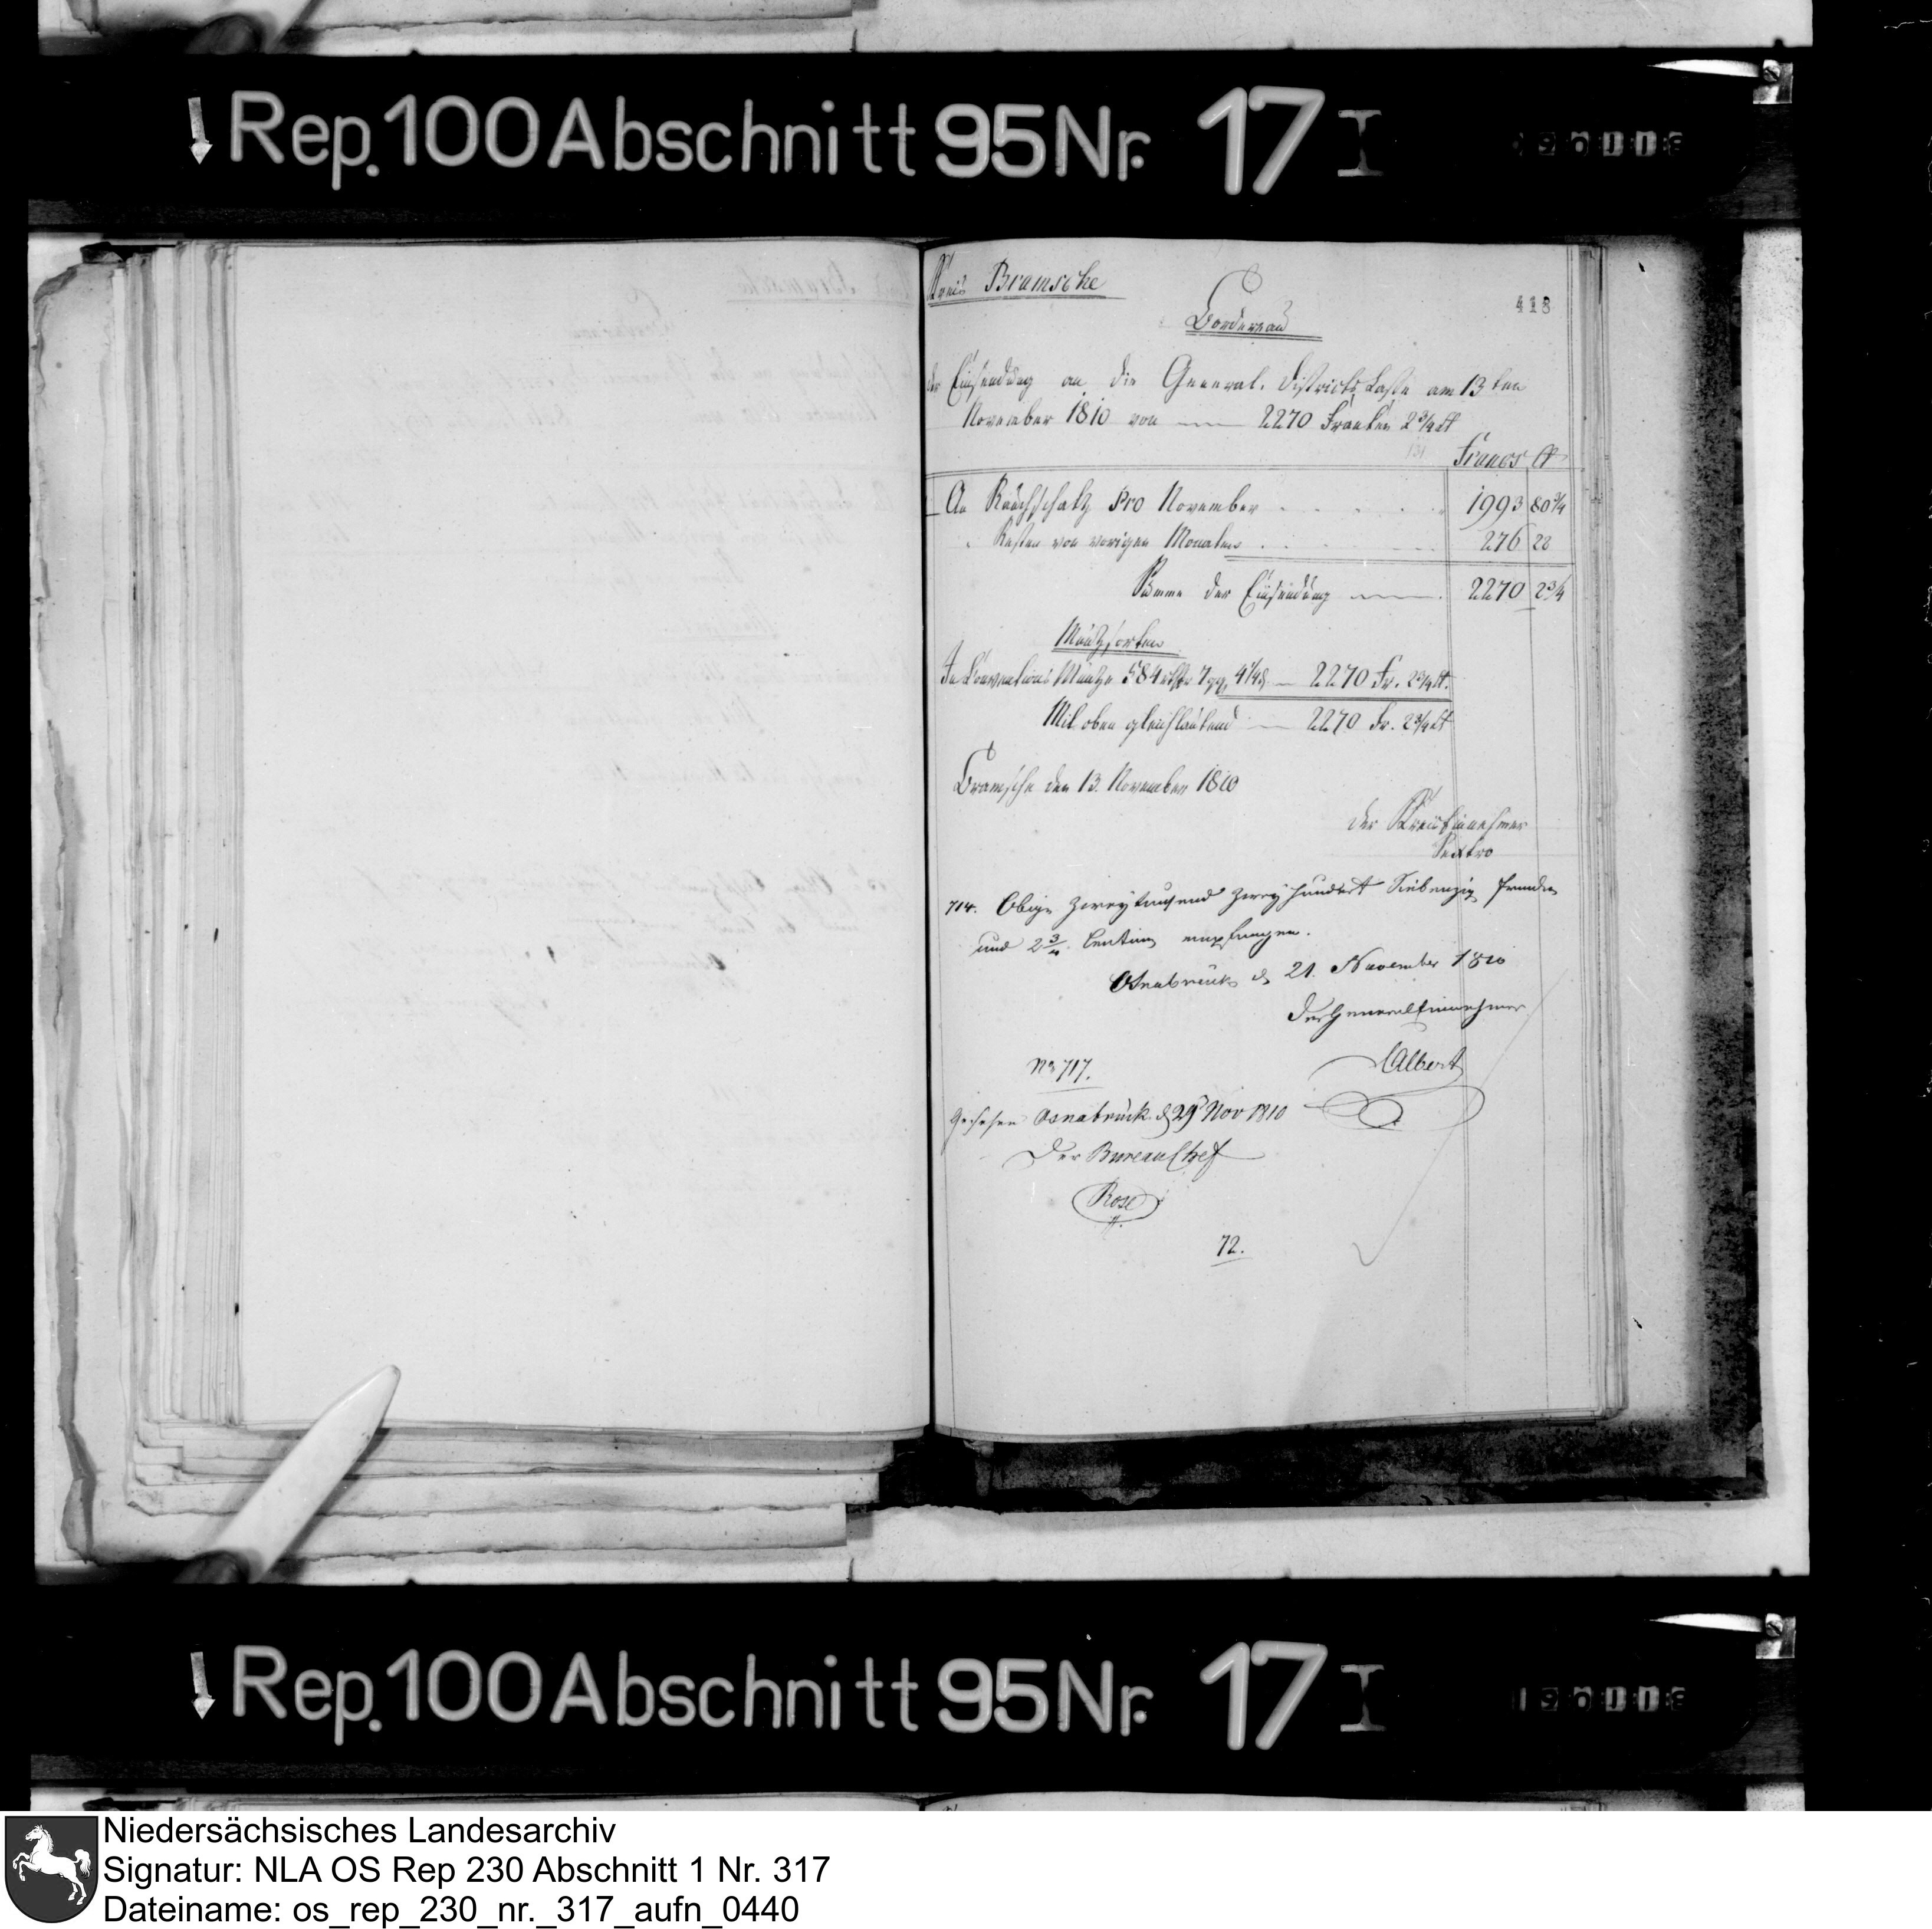 Rep. 100 Abschnitt 95 Nr. 17 I
Kreis Bramsche
418
Bordereau
der Einsendung an die General-Districts Casse am 13ten
November 1810 von 2270 Franken 2 3/4 Ct
Francs Ct
An Rauchschatz pro November . . . . . 1993 80 3/4
" Resten von vorigen Monaten . . . . 276 22
Summe der Einsendung 2270 2 3/4
Münzsorten
In Conventions Münze 584 rthlr 7 gg, 4 1/4 d — 2270 Fr. 2 3/4 Ct.
Mit oben gleichlautend — 2270 Fr. 2 3/4 Ct
Bramsche den 13. November 1810
Der Kreis Einnehmer
Sextro
714. Obige Zweytausend Zweyhundert Siebenzig Franken
und 2 3/4 Centim empfangen.
Osnabrück d 21. November 1810
Der General Einnehmer
Albert
No 717.
Gesehen Osnabrück d 29 Nov 1810
Der Bureau Chef
Rose
72.
Rep. 100 Abschnitt 95 Nr. 17 I
Niedersächsisches Landesarchiv
Signatur: NLA OS Rep 230 Abschnitt 1 Nr. 317
Dateiname: os_rep_230_nr._317_aufn_0440